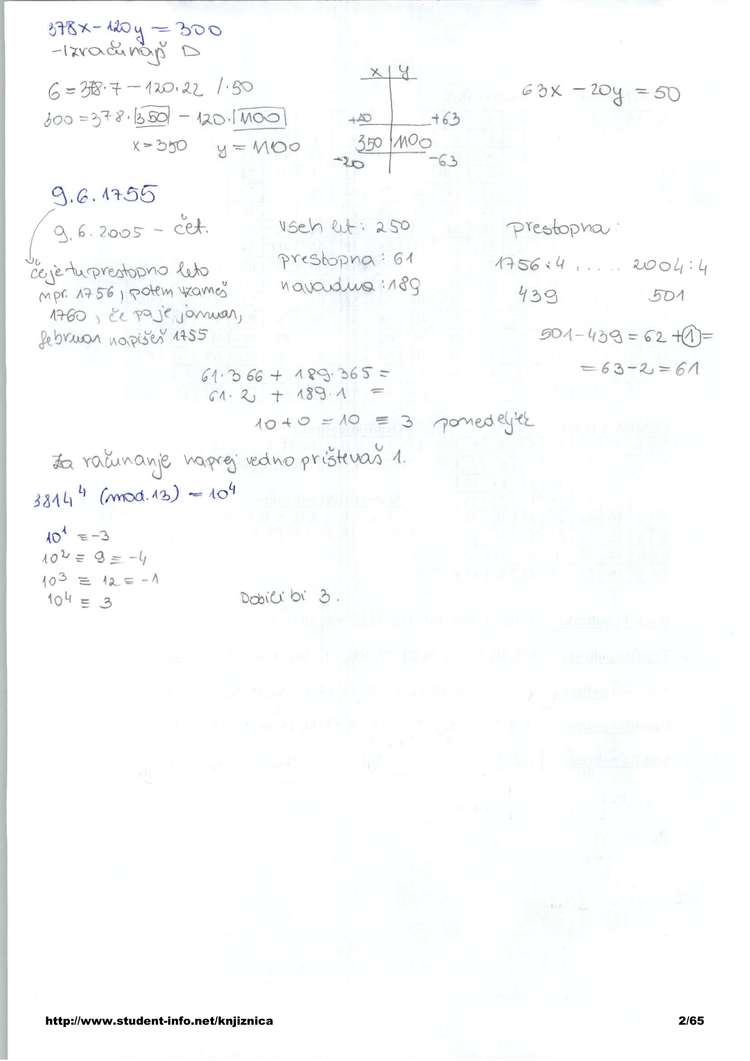 378x - 120y = 300
- Izračunaš D
6 = 378·7 - 120·22 /·50
300 = 378·350 - 120·1100
x = 350 y = 1100
x y
+20 +63
350 1100
-20 -63
63x - 20y = 50
9.6.1755
9.6.2005 - čet.
če je tu prestopno leto
npr. 1756, potem vzameš
1760, če pa je januar,
februar napišeš 1755
vseh let: 250
prestopna: 61
navadna: 189
prestopna:
1756:4 ..... 2004:4
439 501
501 - 439 = 62 + 1 =
= 63 - 2 = 61
61·366 + 189·365 =
61·2 + 189·1 =
10 + 0 = 10 ≡ 3 ponedeljek
Za računanje naprej vedno prištevaš 1.
3814⁴ (mod.13) = 10⁴
10¹ ≡ -3
10² ≡ 9 ≡ -4
10³ ≡ 12 ≡ -1
10⁴ ≡ 3
Dobili bi 3.
http://www.student-info.net/knjiznica 2/65